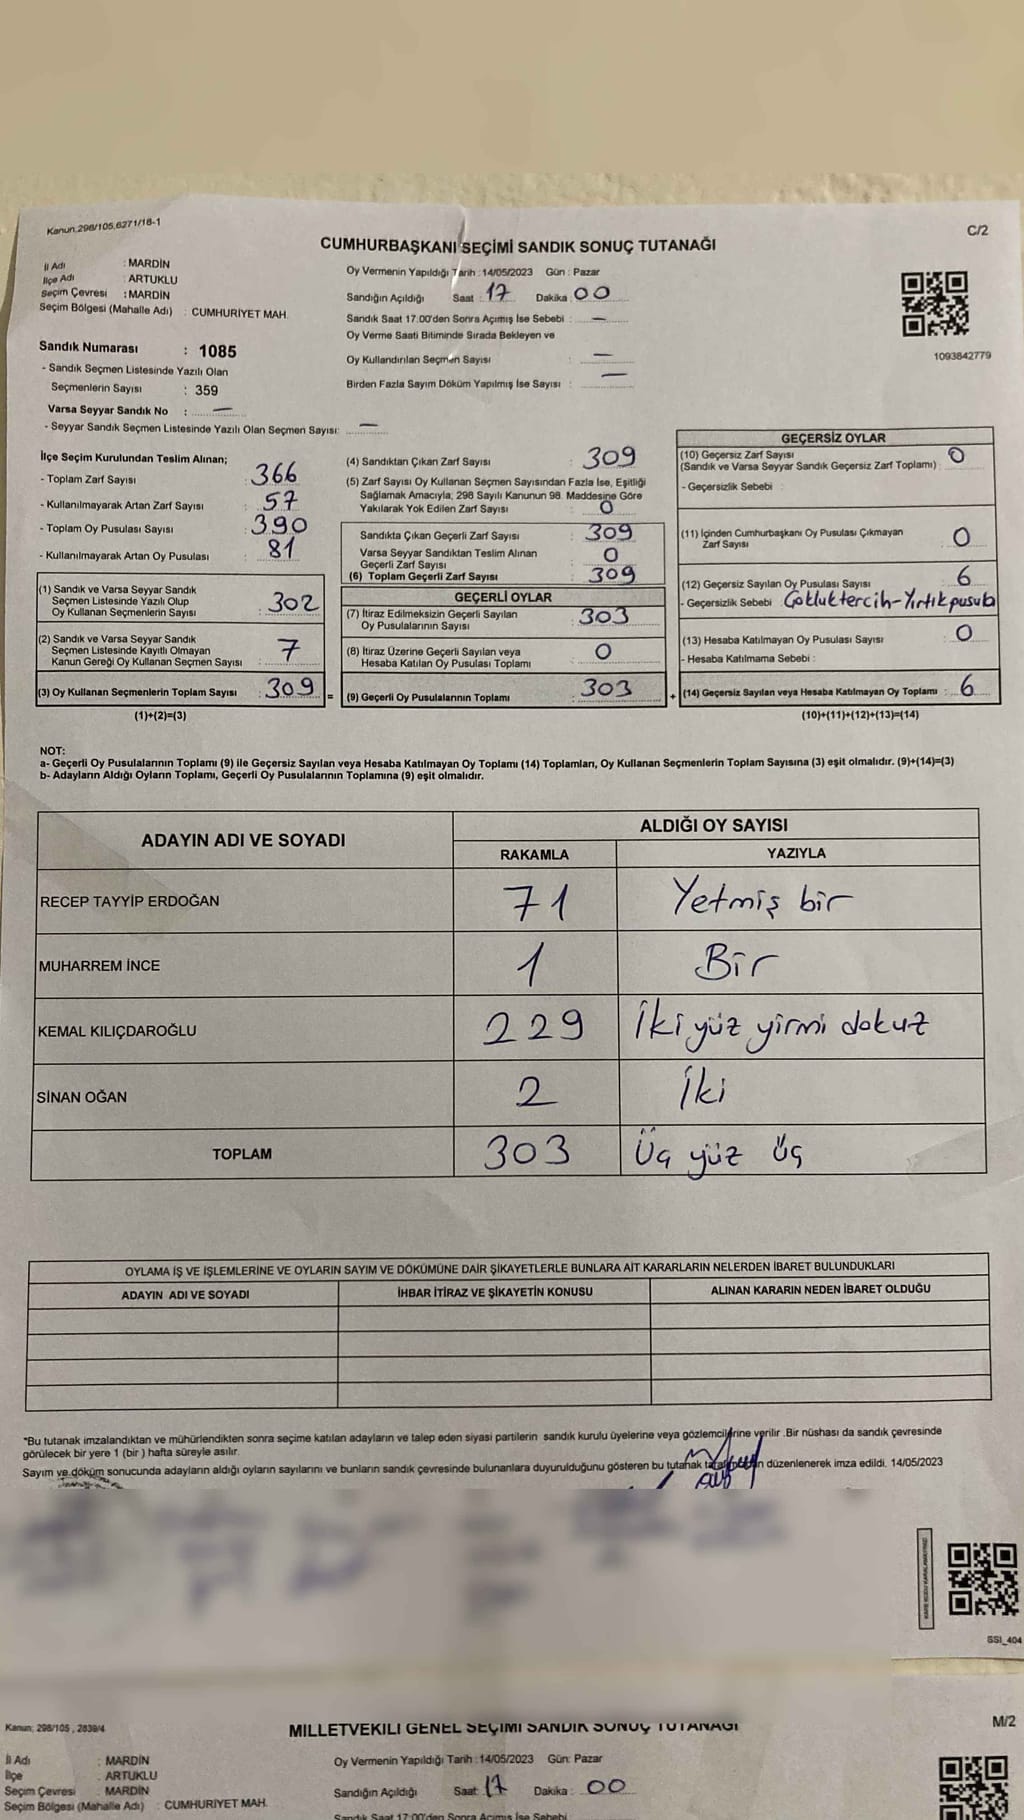 Kanun,298/105,6271/18-1
C/2
CUMHURBAŞKANI SEÇİMİ SANDIK SONUÇ TUTANAĞI
İl Adı : MARDİN
İlçe Adı : ARTUKLU
Seçim Çevresi : MARDİN
Seçim Bölgesi (Mahalle Adı) : CUMHURİYET MAH.
Oy Vermenin Yapıldığı Tarih : 14/05/2023 Gün : Pazar
Sandığın Açıldığı Saat : 17 Dakika : 00
Sandık Saat 17:00'den Sonra Açımış İse Sebebi : —
Oy Verme Saati Bitiminde Sırada Bekleyen ve
Oy Kullandırılan Seçmen Sayısı : —
Birden Fazla Sayım Döküm Yapılmış İse Sayısı : —
1093842779
Sandık Numarası : 1085
- Sandık Seçmen Listesinde Yazılı Olan
Seçmenlerin Sayısı : 359
Varsa Seyyar Sandık No : —
- Seyyar Sandık Seçmen Listesinde Yazılı Olan Seçmen Sayısı: —
İlçe Seçim Kurulundan Teslim Alınan;
- Toplam Zarf Sayısı : 366
- Kullanılmayarak Artan Zarf Sayısı : 57
- Toplam Oy Pusulası Sayısı : 390
- Kullanılmayarak Artan Oy Pusulası : 81
(1) Sandık ve Varsa Seyyar Sandık
Seçmen Listesinde Yazılı Olup
Oy Kullanan Seçmenlerin Sayısı : 302
(2) Sandık ve Varsa Seyyar Sandık
Seçmen Listesinde Kayıtlı Olmayan
Kanun Gereği Oy Kullanan Seçmen Sayısı : 7
(3) Oy Kullanan Seçmenlerin Toplam Sayısı : 309 =
(1)+(2)=(3)
(4) Sandıktan Çıkan Zarf Sayısı : 309
(5) Zarf Sayısı Oy Kullanan Seçmen Sayısından Fazla İse, Eşitliği
Sağlamak Amacıyla, 298 Sayılı Kanunun 98. Maddesine Göre
Yakılarak Yok Edilen Zarf Sayısı : 0
Sandıkta Çıkan Geçerli Zarf Sayısı : 309
Varsa Seyyar Sandıktan Teslim Alınan
Geçerli Zarf Sayısı : 0
(6) Toplam Geçerli Zarf Sayısı : 309
GEÇERLİ OYLAR
(7) İtiraz Edilmeksizin Geçerli Sayılan
Oy Pusulalarının Sayısı : 303
(8) İtiraz Üzerine Geçerli Sayılan veya
Hesaba Katılan Oy Pusulası Toplamı : 0
(9) Geçerli Oy Pusulalarının Toplamı : 303 +
GEÇERSİZ OYLAR
(10) Geçersiz Zarf Sayısı
(Sandık ve Varsa Seyyar Sandık Geçersiz Zarf Toplamı) : 0
- Geçersizlik Sebebi :
(11) İçinden Cumhurbaşkanı Oy Pusulası Çıkmayan
Zarf Sayısı : 0
(12) Geçersiz Sayılan Oy Pusulası Sayısı : 6
- Geçersizlik Sebebi : Çokluktercih-Yırtık pusula
(13) Hesaba Katılmayan Oy Pusulası Sayısı : 0
- Hesaba Katılmama Sebebi :
(14) Geçersiz Sayılan veya Hesaba Katılmayan Oy Toplamı : 6
(10)+(11)+(12)+(13)=(14)
NOT:
a- Geçerli Oy Pusulalarının Toplamı (9) ile Geçersiz Sayılan veya Hesaba Katılmayan Oy Toplamı (14) Toplamları, Oy Kullanan Seçmenlerin Toplam Sayısına (3) eşit olmalıdır. (9)+(14)=(3)
b- Adayların Aldığı Oyların Toplamı, Geçerli Oy Pusulalarının Toplamına (9) eşit olmalıdır.
ADAYIN ADI VE SOYADI
ALDIĞI OY SAYISI
RAKAMLA YAZIYLA
RECEP TAYYİP ERDOĞAN 71 Yetmiş bir
MUHARREM İNCE 1 Bir
KEMAL KILIÇDAROĞLU 229 İki yüz yirmi dokuz
SİNAN OĞAN 2 İki
TOPLAM 303 Üç yüz üç
OYLAMA İŞ VE İŞLEMLERİNE VE OYLARIN SAYIM VE DÖKÜMÜNE DAİR ŞİKAYETLERLE BUNLARA AİT KARARLARIN NELERDEN İBARET BULUNDUKLARI
ADAYIN ADI VE SOYADI İHBAR İTİRAZ VE ŞİKAYETİN KONUSU ALINAN KARARIN NEDEN İBARET OLDUĞU
"Bu tutanak imzalandıktan ve mühürlendikten sonra seçime katılan adayların ve talep eden siyasi partilerin sandık kurulu üyelerine veya gözlemcilerine verilir .Bir nüshası da sandık çevresinde
görülecek bir yere 1 (bir ) hafta süreyle asılır.
Sayım ve döküm sonucunda adayların aldığı oyların sayılarını ve bunların sandık çevresinde bulunanlara duyurulduğunu gösteren bu tutanak düzenlenerek imza edildi. 14/05/2023
SSI_404
Kanun; 298/105 , 2839/4
MİLLETVEKİLİ GENEL SEÇİMİ SANDIK SONUÇ TUTANAĞI
M/2
İl Adı : MARDİN
İlçe : ARTUKLU
Seçim Çevresi : MARDİN
Seçim Bölgesi (Mahalle Adı) : CUMHURİYET MAH.
Oy Vermenin Yapıldığı Tarih : 14/05/2023 Gün: Pazar
Sandığın Açıldığı Saat: 17 Dakika : 00
Sandık Saat 17:00'den Sonra Açımış İse Sebebi